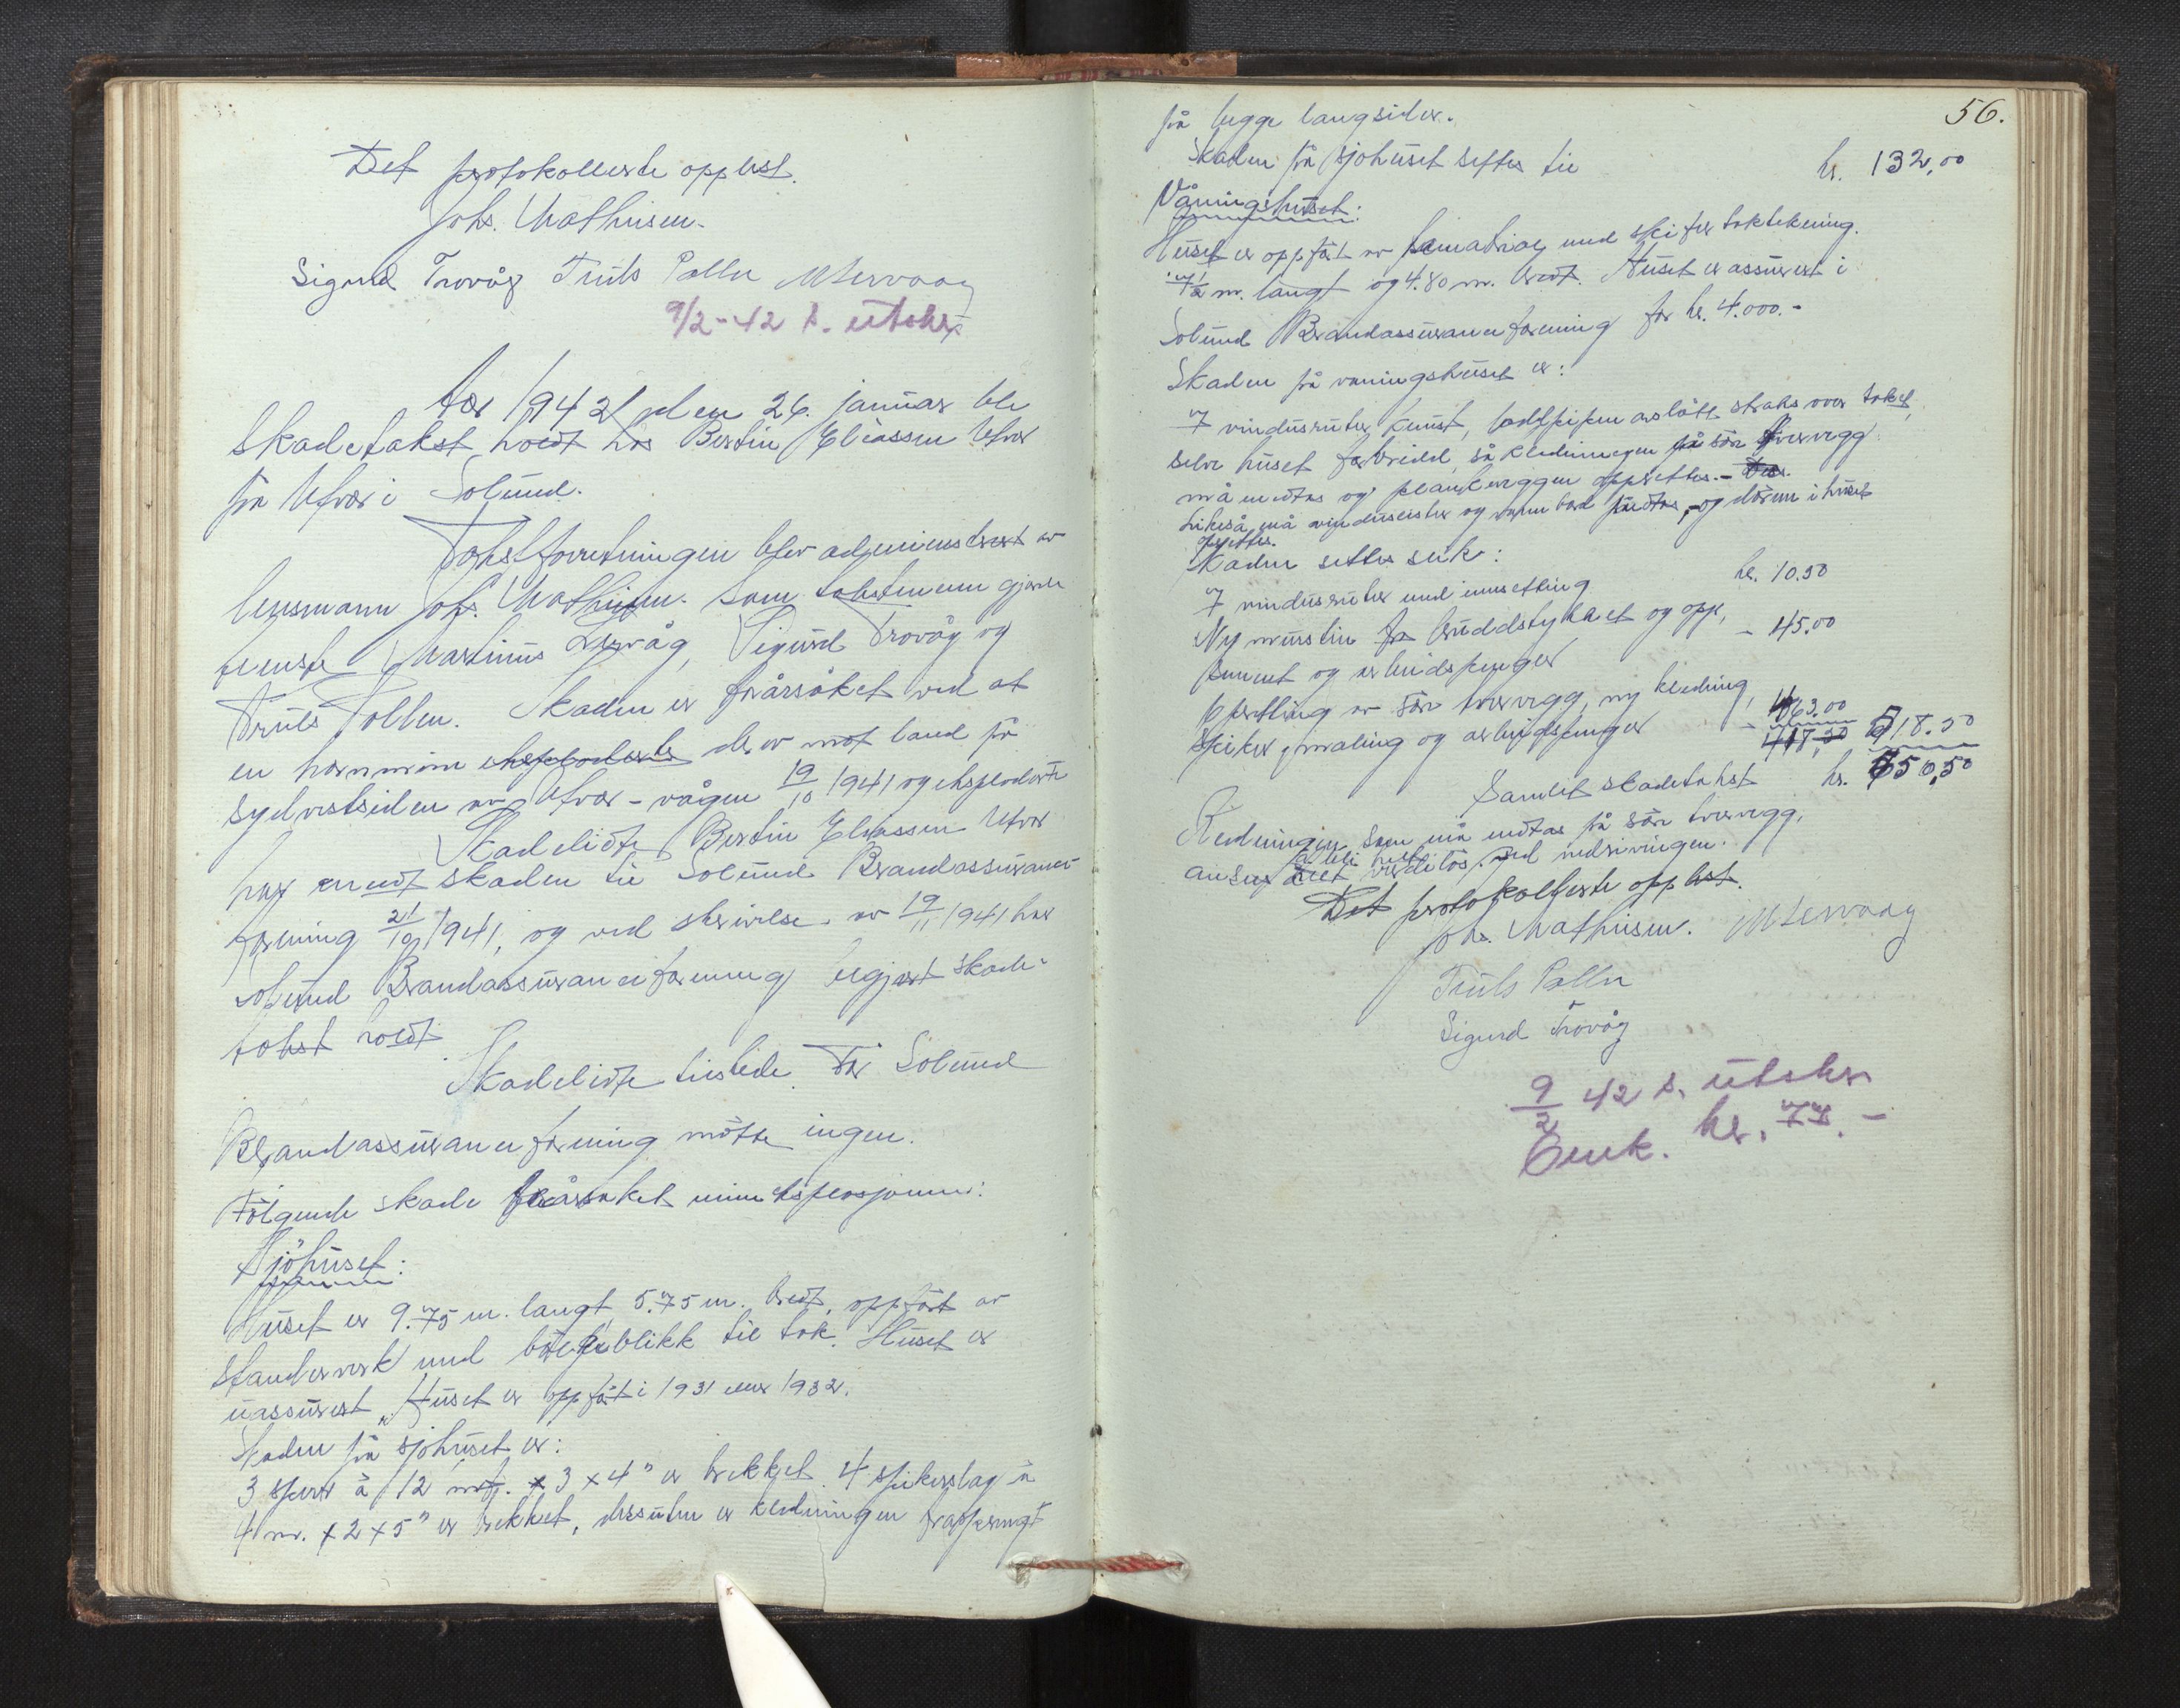 Det protokollerte opplest.
Johs. Mathisen.
Sigurd Trovåg Truls Pollen M Lervaag
9/2-42 s. utskr.
Aar 1942 den 26. januar ble
skadetakst holdt hos Bertin Eliassen Utvær
på Utvær i Solund.
Takstforretningen blev administrert av
lensmann Johs. Mathisen. Som takstmenn gjorde
teneste Martinus Lervåg, Sigurd Trovåg og
Truls Pollen. Skaden er forårsåket ved at
en hornmine eksploderte drev mot land på
sydvestsiden av Utvær-vågen 19/10 1941 og eksploderte
Skadelidte Bertin Eliassen Utvær
har meldt skaden til Solund Brandassurance-
forening 21/10 1941, og ved skrivelse av 19/11 1941 har
Solund Brandassuranceforening begjært skade-
takst holdt.
Skadelidte tilstede. For Solund
Brandassuranceforening møtte ingen.
Følgende skade forårsaket mineeksplosjonen:
Sjöhuset:
Huset er 9.75 m. langt 5.75 m. bredt, oppført av
standerverk med bølgeblikk til tak. Huset er
uassurert. Huset er oppført i 1931 eller 1932.
Skaden på sjøhuset er:
3 sperr à 12 3 x 4" er brekket 4 spikerslag à
4 m. x 2 x 5" er brekket, dessuten er kledningen
på begge langsider.
56.
Skaden på sjøhuset settes til kr. 132,00
Våningshuset:
Huset er oppført av med skifer taktekning.
m. langt og 4.80 m. bredt. Huset er assurert i
Solund Brandassuranceforening for kr. 4.000.-
Skaden på våningshuset er:
7 vindusruter knust, avslått straks over taket,
selve huset forvridd, så kledningen på søre tvervegg
må nedtas og plankveggen opprettes.-
Likeså må vinduslister og nedtas, og dørene i huset
opprettes.
Skaden settes slik:
7 vindusruter med innsetting kr. 10.50
Ny murstein og opp,
sement og arbeidspenger - 45.00
Oppretting av søre tvervegg, ny kledning,
spiker, maling og arbeidspenger - 463.00
518.50
Samlet skadetakst kr. 650,50
Kledningen som må nedtas på søre tvervegg,
anser å bli helt verdiløs ved nedrivningen.
Det protokollerte opplest.
Johs. Mathisen. M Lervaag
Truls Pollen
Sigurd Trovåg
9/2 42 s. utskr.
Omk. kr. 77.-